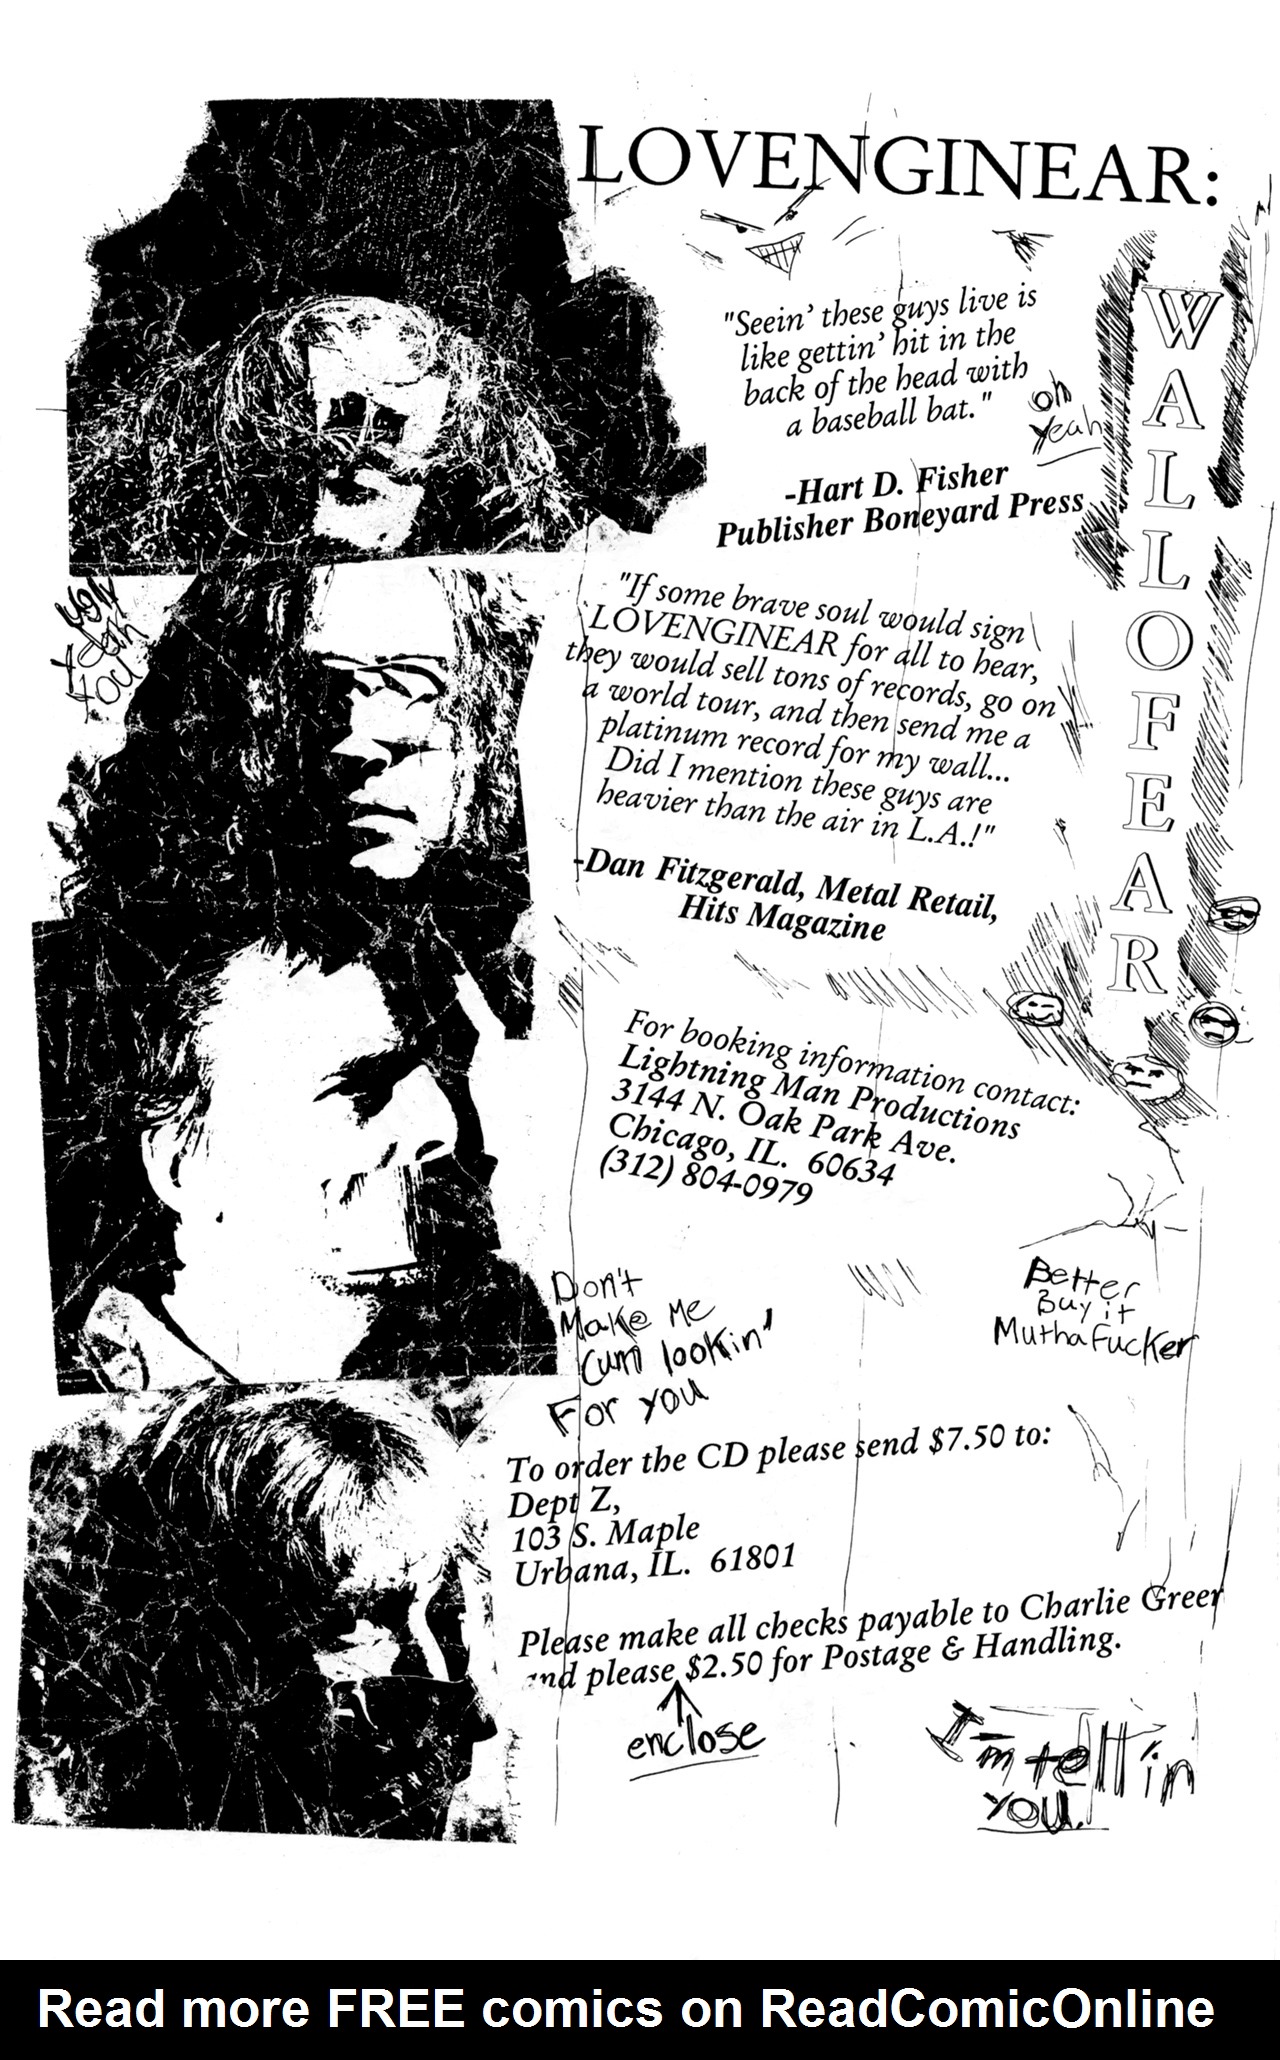 LOVENGINEAR:
WALL OF FEAR
"Seein' these guys live is
like gettin' hit in the
back of the head with
a baseball bat."
oh
Yeah
-Hart D. Fisher
Publisher Boneyard Press
"If some brave soul would sign
LOVENGINEAR for all to hear,
they would sell tons of records, go on
a world tour, and then send me a
platinum record for my wall...
Did I mention these guys are
heavier than the air in L.A.!"
-Dan Fitzgerald, Metal Retail,
Hits Magazine
For booking information contact:
Lightning Man Productions
3144 N. Oak Park Ave.
Chicago, IL. 60634
(312) 804-0979
Don't
Make Me
Cum lookin'
For you
Better
Buy it
MuthaFucker
To order the CD please send $7.50 to:
Dept Z,
103 S. Maple
Urbana, IL. 61801
Please make all checks payable to Charlie Greer
and please $2.50 for Postage & Handling.
enclose
I'm tell'in
you.
Read more FREE comics on ReadComicOnline